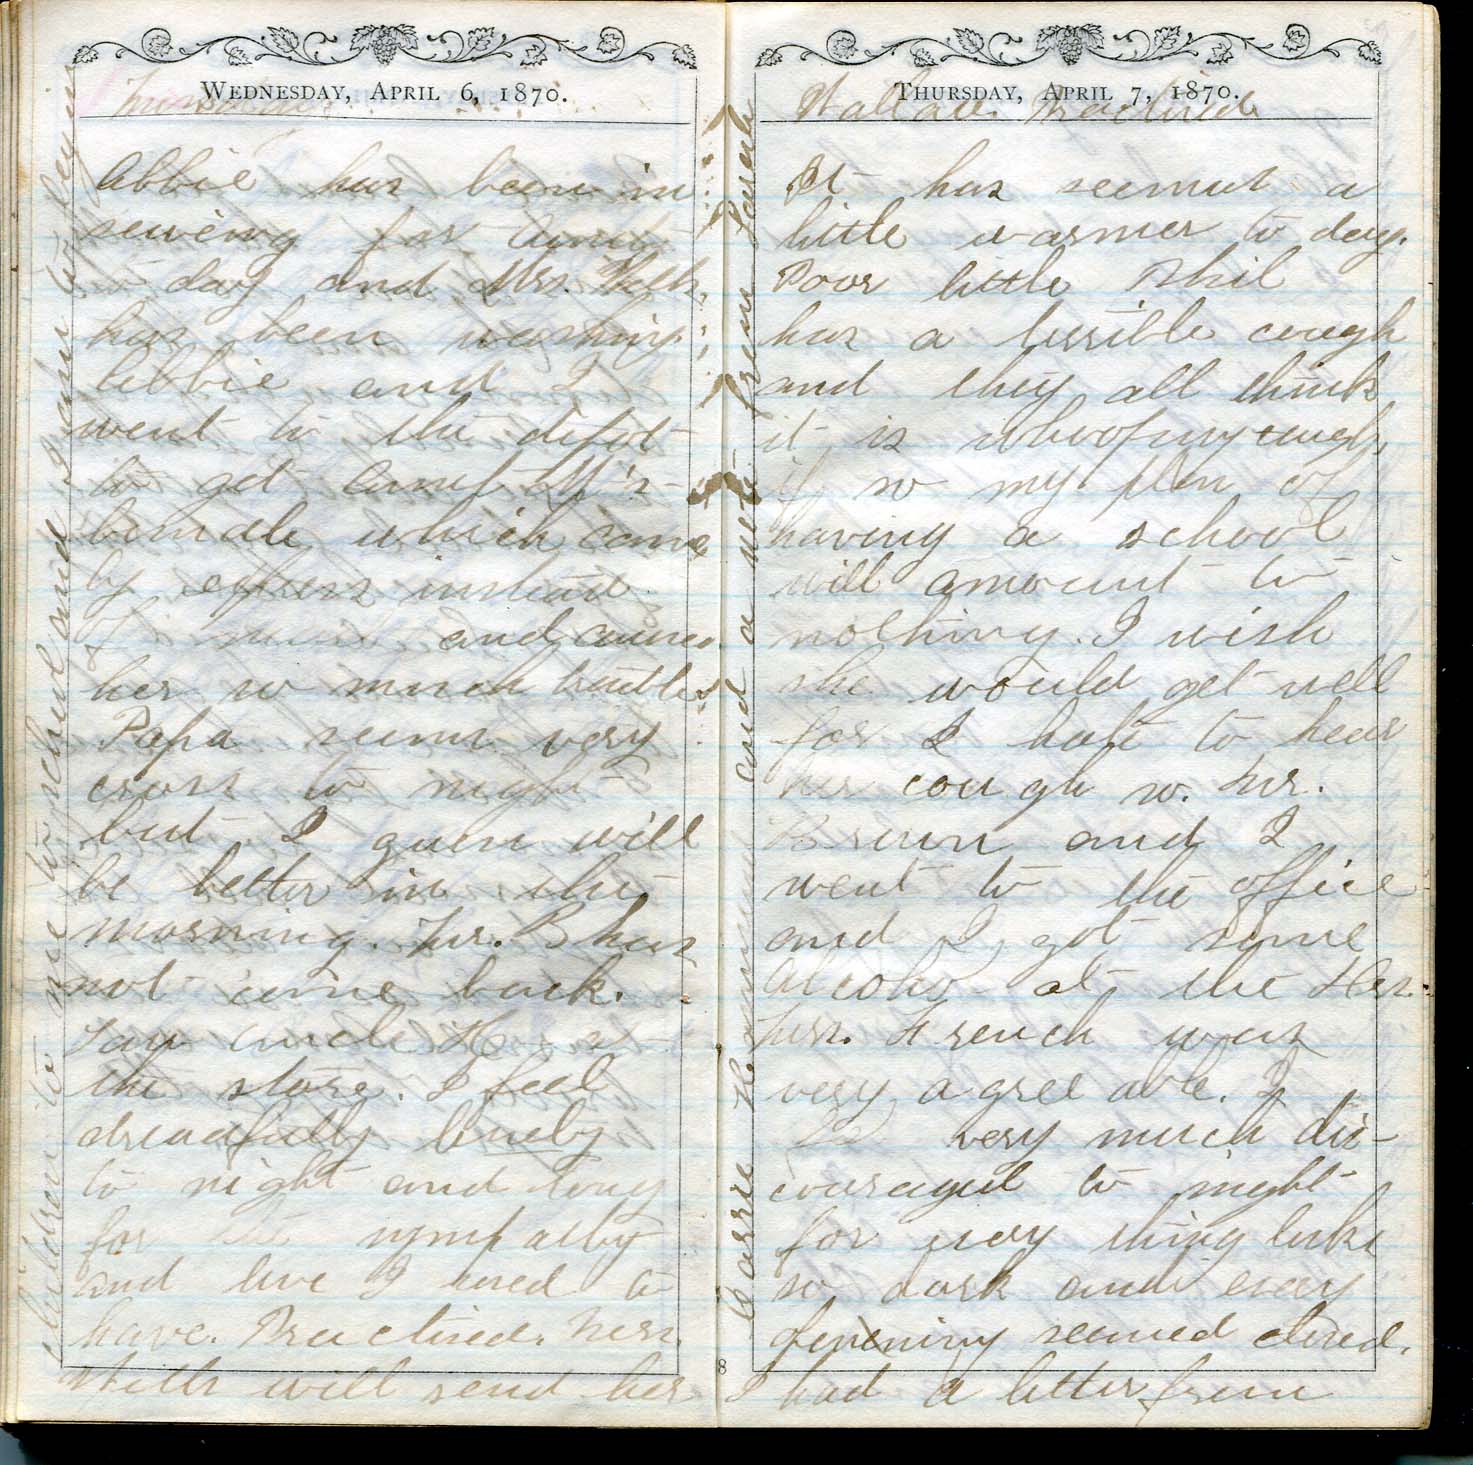 WEDNESDAY, APRIL 6, 1870.
Abbie has been in
sewing for Aunt
to day and Mrs.
has been washing.
Abbie and I
went to the depot
to get Aunt M's
bundle which came
by express instead
of and caused
her so much trouble
Papa seems very
cross to night
but I guess will
be better in the
morning. Mr. B has
not come back.
Saw Uncle H at
the store. I feel
dreadfully lonely
to night and long
for the sympathy
and love I used to
have. Practised. Mrs.
will send her
children to me to school and Susie to begin
THURSDAY, APRIL 7, 1870.
Wallace. Practised
It has seemed a
little warmer to day.
Poor little Phil
has a terrible cough
and they all think
it is whooping cough,
if so my plan of
having a school
will amount to
nothing. I wish
she would get well
for I hate to hear
her cough so. Mr.
Brown and I
went to the office
and I got some
Alcohol at the
Mrs. French was
very agreeable. I
very much dis-
couraged to night
for every thing looks
so dark and every
opening seemed closed.
I had a letter from
Carrie and a note from Sarah
8